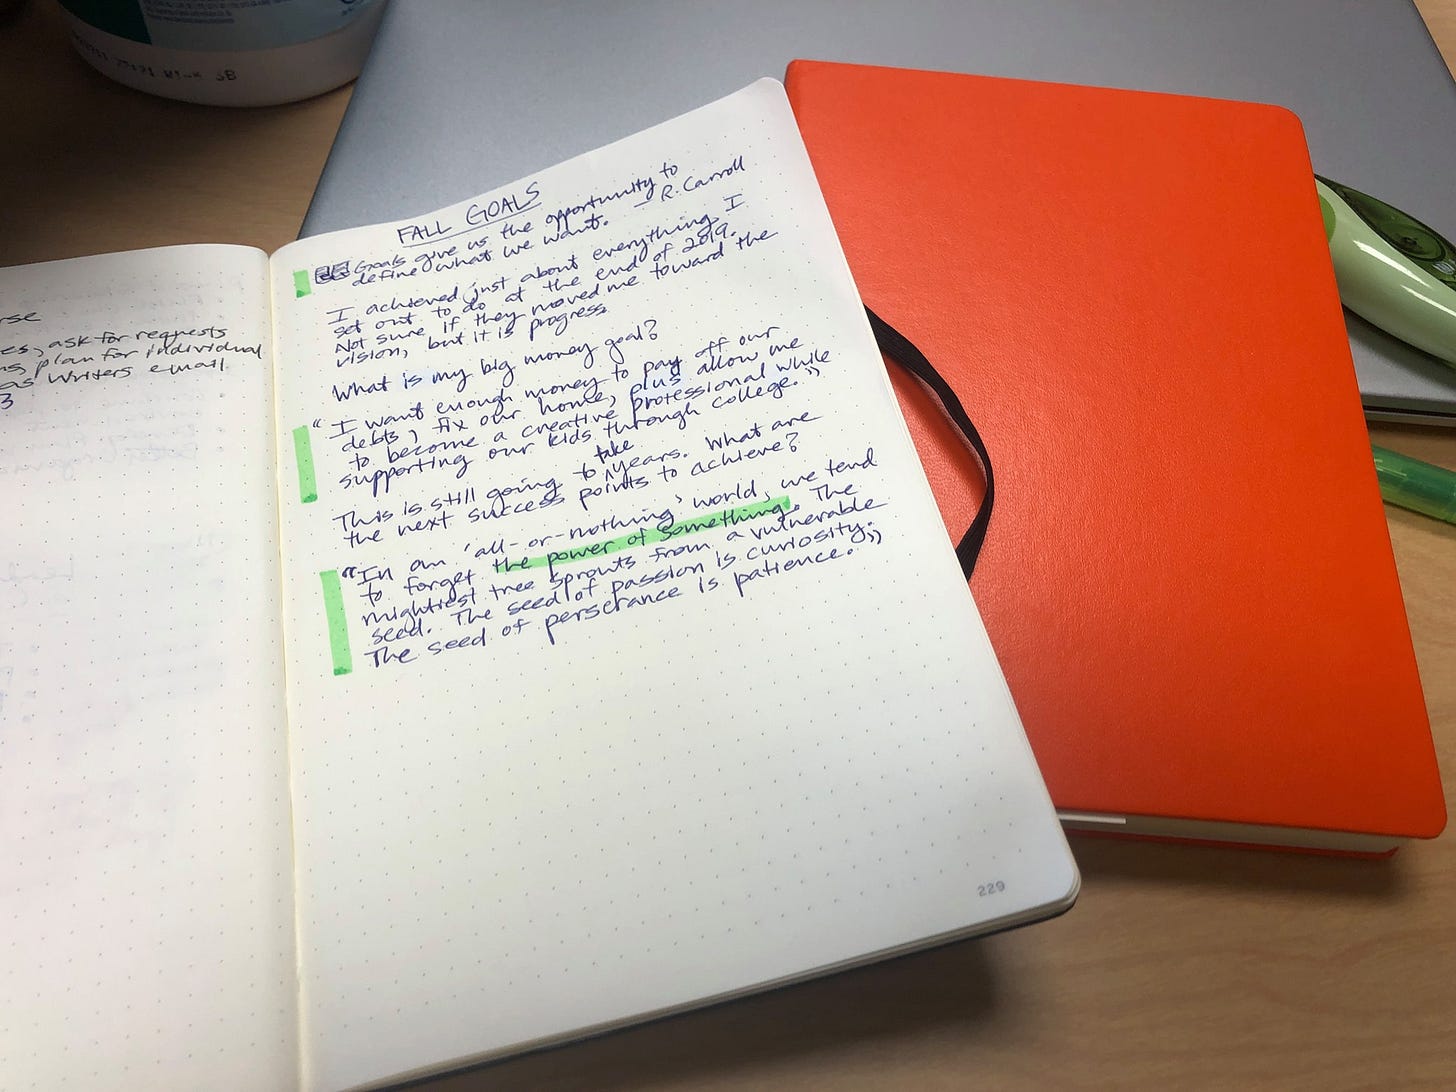 rse
es, ask for requests
plan for individual
as Writers email
3
FALL GOALS
Goals give us the opportunity to
define what we want. — R. Carroll
I achieved just about everything I
set out to do at the end of 2019.
Not sure if they moved me toward the
vision, but it is progress.
What is my big money goal?
"I want enough money to pay off our
debts, fix our home, plus allow me
to become a creative professional while
supporting our kids through college."
This is still going to take years. What are
the next success points to achieve?
"In an 'all-or-nothing' world, we tend
to forget the power of something. The
mightiest tree sprouts from a vulnerable
seed. The seed of passion is curiosity.
The seed of persetance is patience."
229